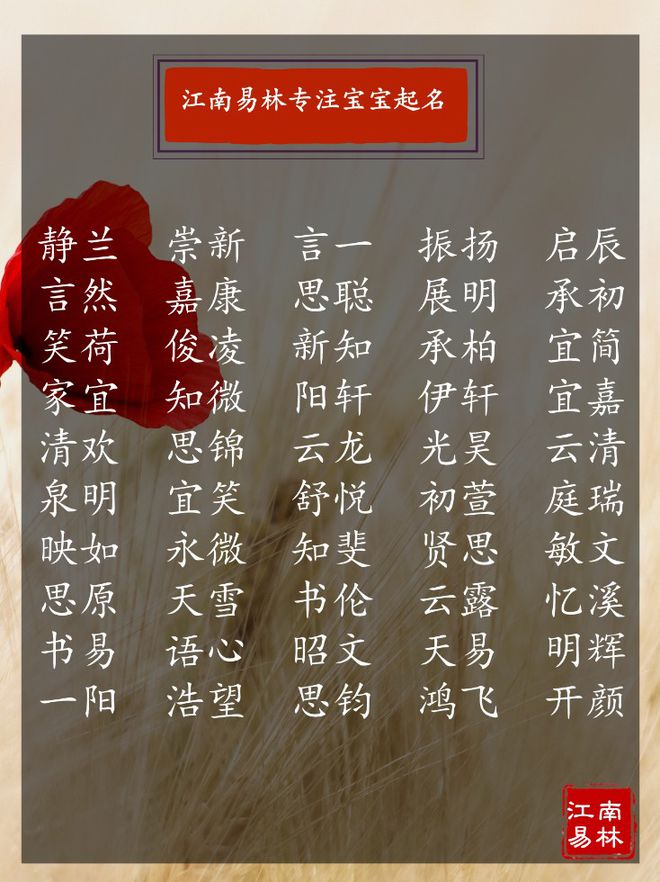 江南易林专注宝宝起名
静兰 崇新 言一 振扬 启辰
言然 嘉康 思聪 展明 承初
笑荷 俊凌 新知 承柏 宜简
家宜 知微 阳轩 伊轩 宜嘉
清欢 思锦 云龙 光昊 云清
泉明 宜笑 舒悦 初萱 庭瑞
映如 永微 知斐 贤思 敏文
思原 天雪 书伦 云露 忆溪
书易 语心 昭文 天易 明辉
一阳 浩望 思钧 鸿飞 开颜
江南
易林